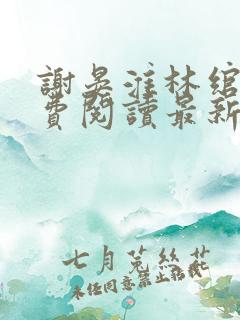 謝晏淮林綰
費閱讀最新
七月菟絲花
未經同意禁止轉載